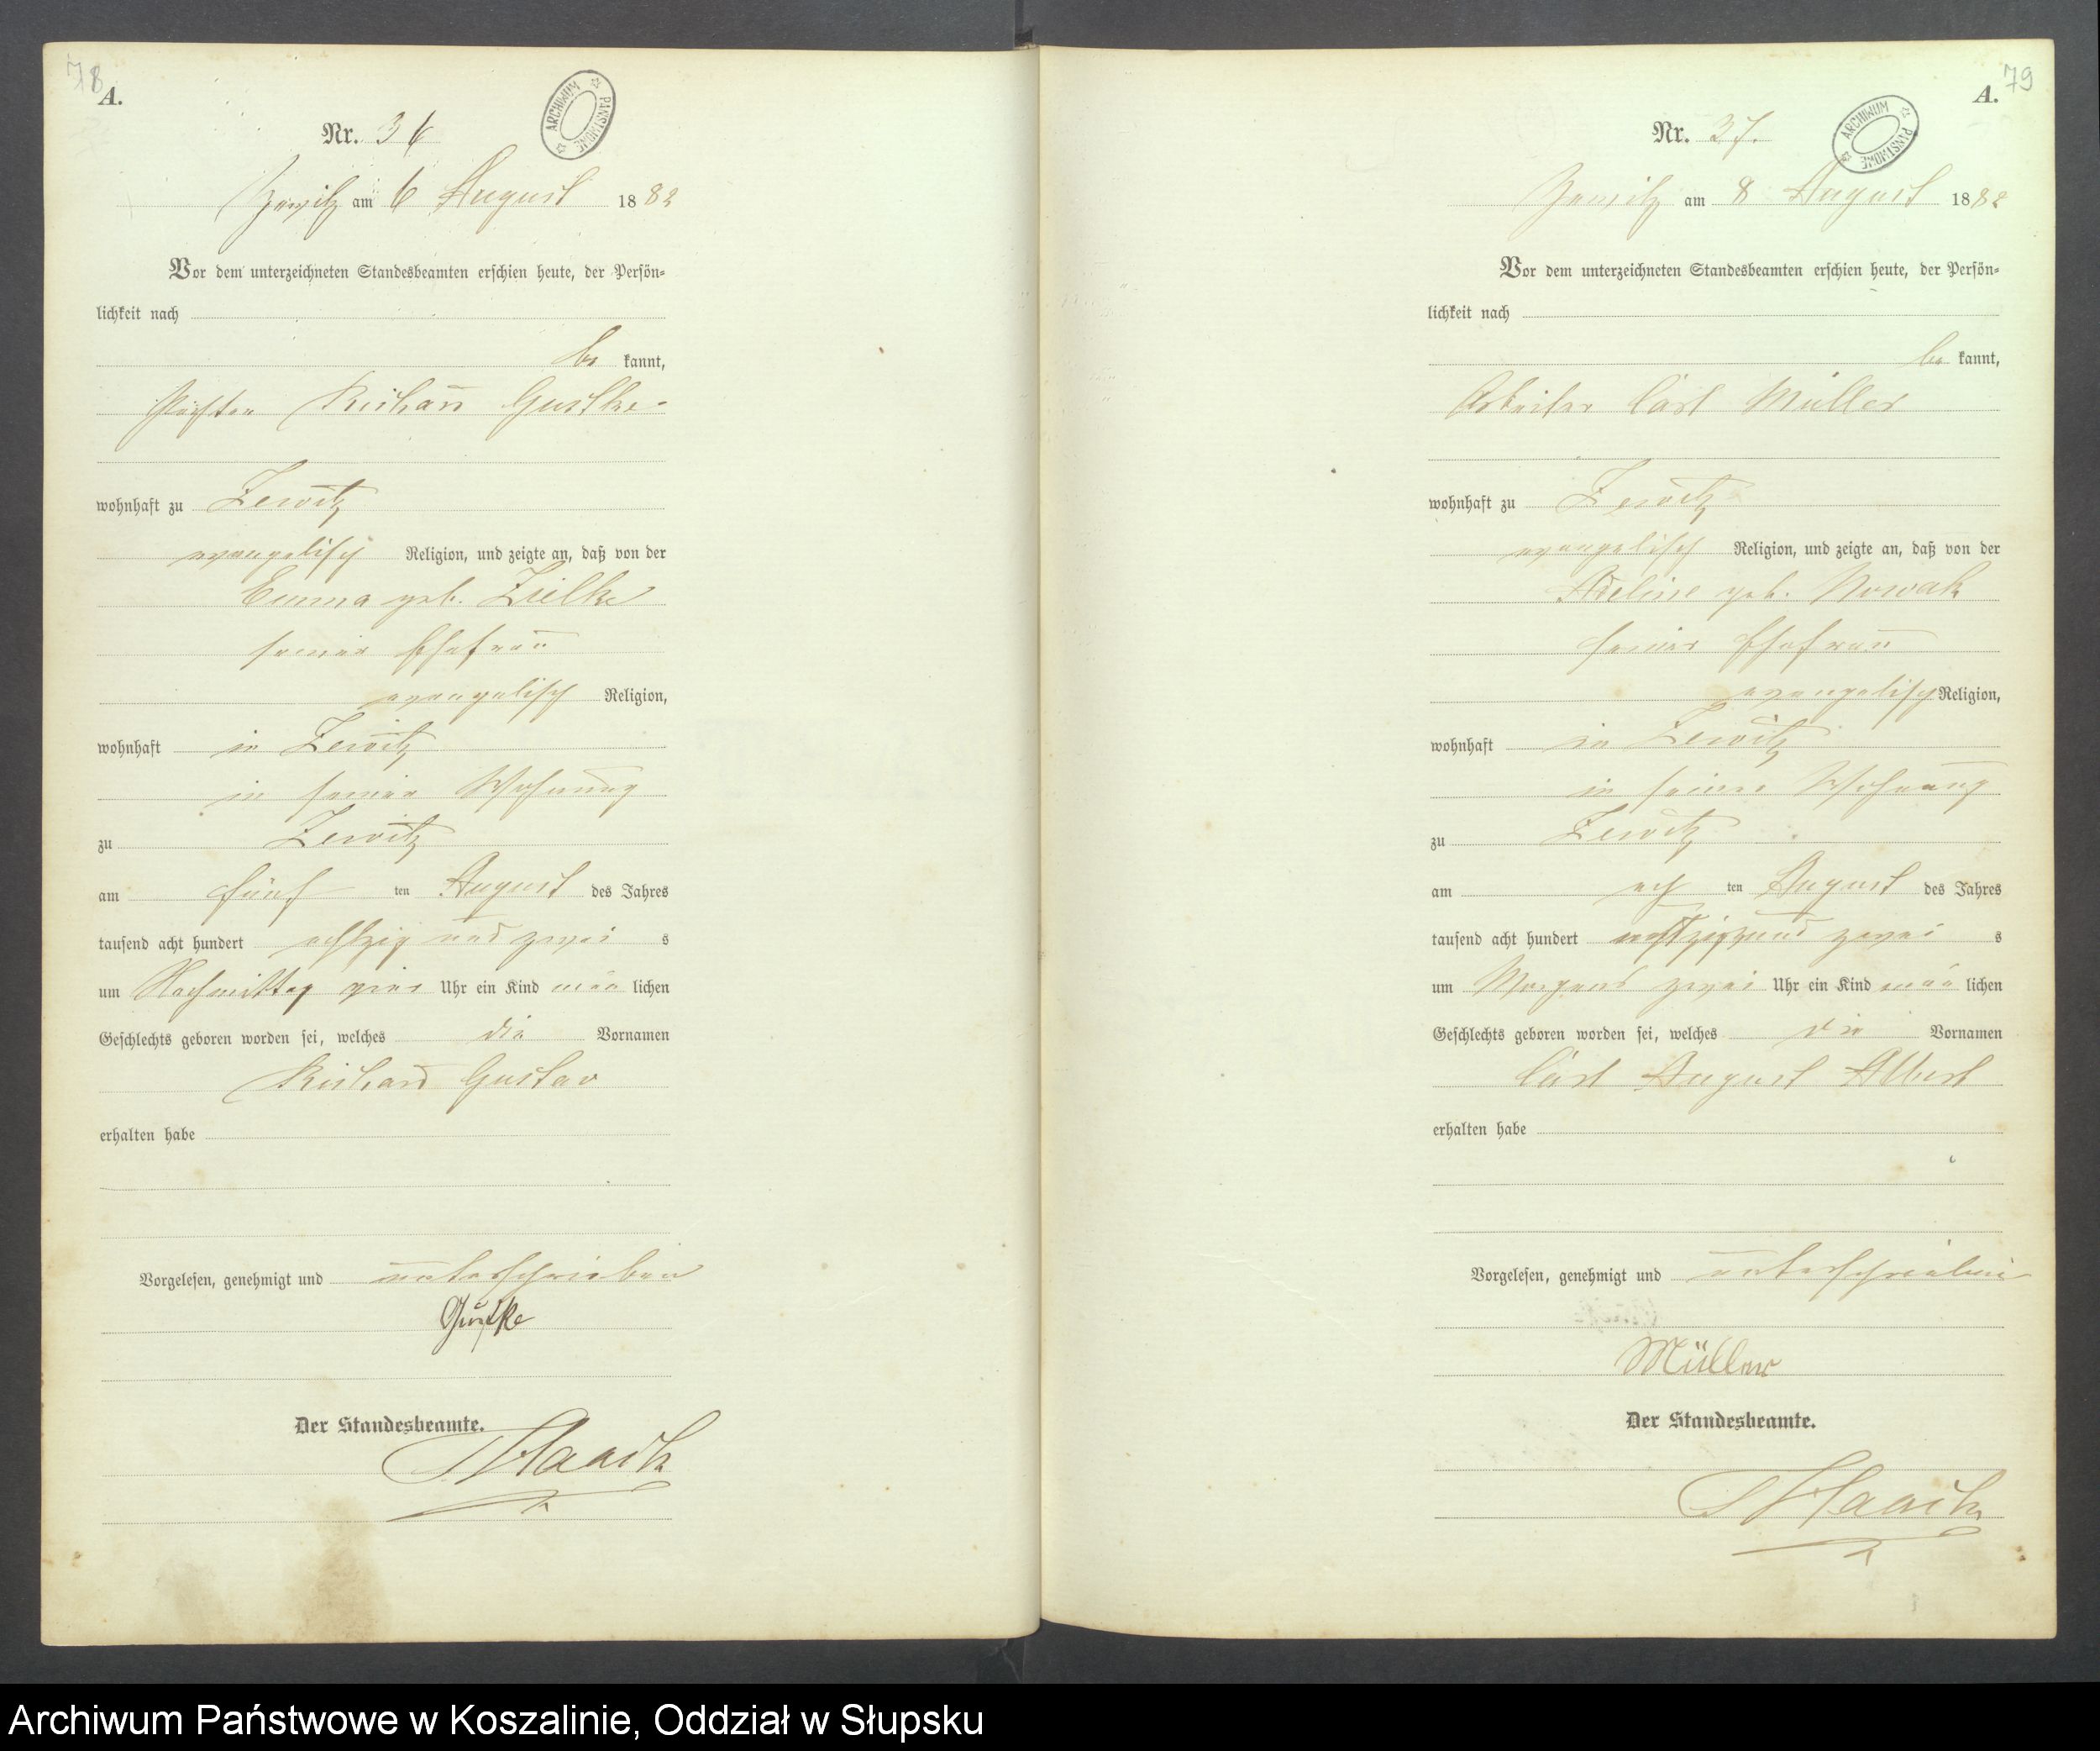 78
A.
ARCHIWUM PAŃSTWOWE
Nr. 36
Zewitz am 6 August 1882
Vor dem unterzeichneten Standesbeamten erschien heute, der Persön-
lichkeit nach
be kannt,
Richard Gustke
wohnhaft zu Zewitz
evangelisch Religion, und zeigte an, daß von der
Emma geb. Zielke
seiner Ehefrau
evangelisch Religion,
wohnhaft in Zewitz
in seiner Wohnung
zu Zewitz
am fünf ten August des Jahres
tausend acht hundert achtzig und zwei s
um Nachmittag vier Uhr ein Kind män lichen
Geschlechts geboren worden sei, welches die Vornamen
Richard Gustav
erhalten habe
Vorgelesen, genehmigt und unterschrieben
Gustke
Der Standesbeamte.
79
A.
ARCHIWUM PAŃSTWOWE
Nr. 37.
Zewitz am 8 August 1882
Vor dem unterzeichneten Standesbeamten erschien heute, der Persön-
lichkeit nach
be kannt,
Arbeiter Carl Müller
wohnhaft zu Zewitz
evangelisch Religion, und zeigte an, daß von der
Adeline geb. Nowak
seiner Ehefrau
evangelisch Religion,
wohnhaft in Zewitz
in seiner Wohnung
zu Zewitz
am ach ten August des Jahres
tausend acht hundert achtzig und zwei s
um Morgens zwei Uhr ein Kind män lichen
Geschlechts geboren worden sei, welches die Vornamen
Carl August Albert
erhalten habe
Vorgelesen, genehmigt und unterschrieben
Müller
Der Standesbeamte.
Archiwum Państwowe w Koszalinie, Oddział w Słupsku